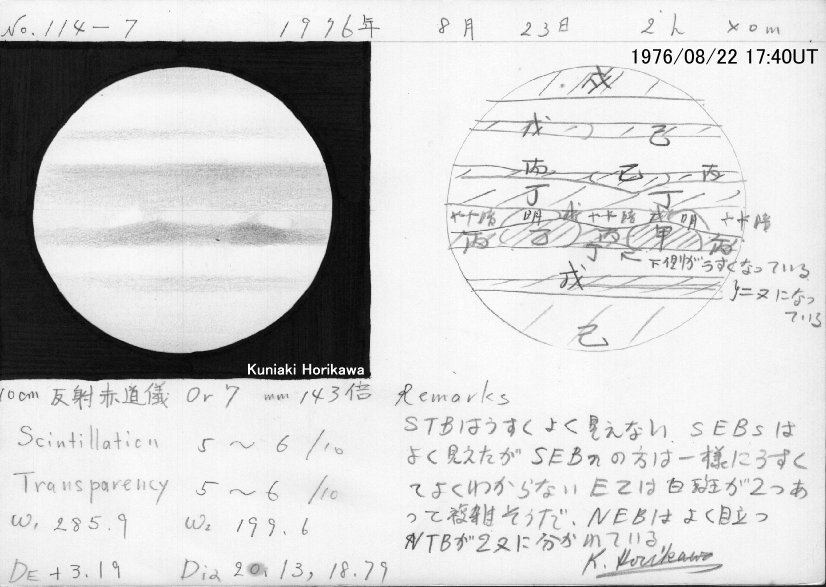 No.114-7 1976年 8月 23日 2h 40m
1976/08/22 17:40UT
戌
戊 己
丙 己 丙
丁 丁
やや暗 明 戊 やや暗 戊 明 やや暗
丙 乙 丙 甲 丙
丁 ← 下側がうすくなっている
戊 }二又になっ
ている
己
Kuniaki Horikawa
10cm 反射赤道儀 Or 7mm 143倍
Scintillation 5～6/10
Transparency 5～6/10
W₁ 285.9 W₂ 199.6
DE +3.19 Dia 20.13, 18.79
Remarks
STBはうすくよく見えない SEBsは
よく見えたがSEBnの方は一様にうすく
てよくわからない EZは白斑が2つあ
って複雑そうだ、NEBはよく目立つ
NTBが2又に分かれている
K. Horikawa